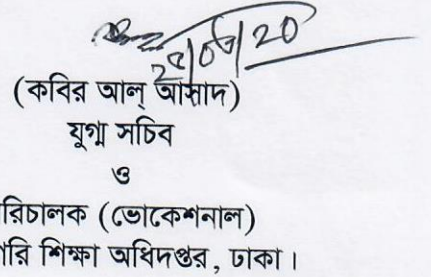 (কবির আল্ আসাদ)
যুগ্ম সচিব
ও
রিচালক (ভোকেশনাল)
রি শিক্ষা অধিদপ্তর, ঢাকা।